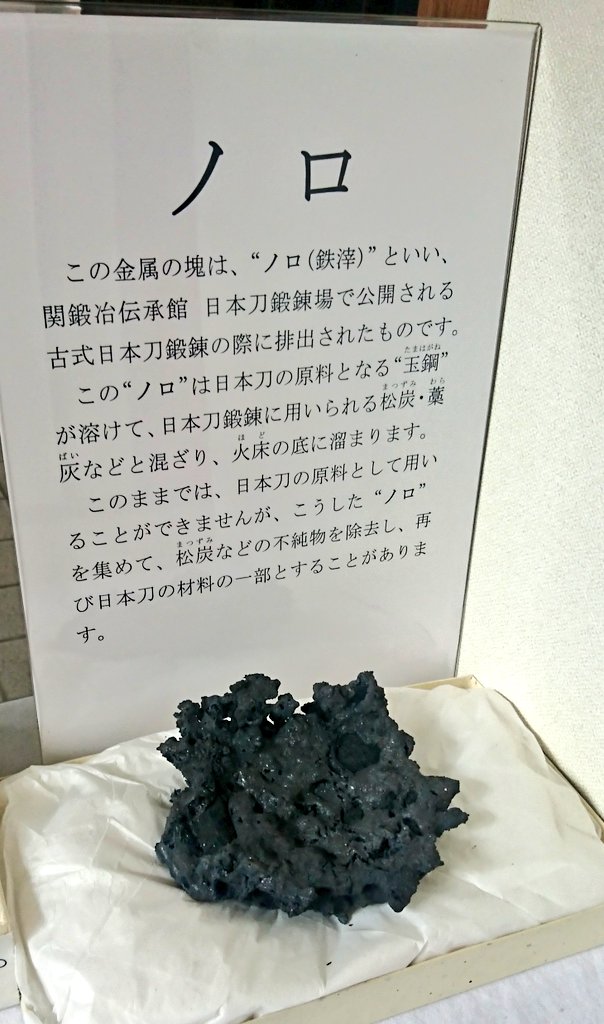 ノロ
この金属の塊は、“ノロ(鉄滓)”といい、
関鍛冶伝承館 日本刀鍛錬場で公開される
古式日本刀鍛錬の際に排出されたものです。
たまはがね
この“ノロ”は日本刀の原料となる“玉鋼”
まつずみ わら
が溶けて、日本刀鍛錬に用いられる松炭・藁
ばい ほど
灰などと混ざり、火床の底に溜まります。
このままでは、日本刀の原料として用い
ることができませんが、こうした“ノロ”
まつずみ
を集めて、松炭などの不純物を除去し、再
び日本刀の材料の一部とすることがありま
す。